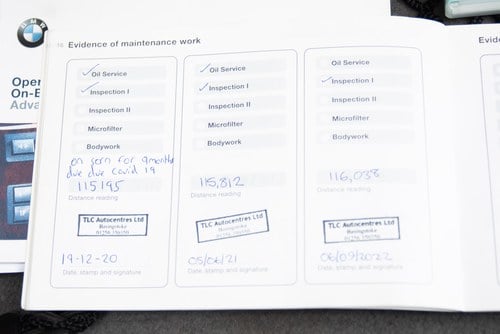 BMW
16 Evidence of maintenance work
Evide
Oper
On-B
Adva
Oil Service
Inspection I
Inspection II
Microfilter
Bodywork
on sorn for 9 months
due due covid 19
115195
Distance reading
TLC Autocentres Ltd
Basingstoke
19-12-20
Date, stamp and signature
Oil Service
Inspection I
Inspection II
Microfilter
Bodywork
115,812
Distance reading
TLC Autocentres Ltd
Basingstoke
05/06/21
Date, stamp and signature
Oil Service
Inspection I
Inspection II
Microfilter
Bodywork
116,038
Distance reading
TLC Autocentres Ltd
Basingstoke
06/09/2022
Date, stamp and signature